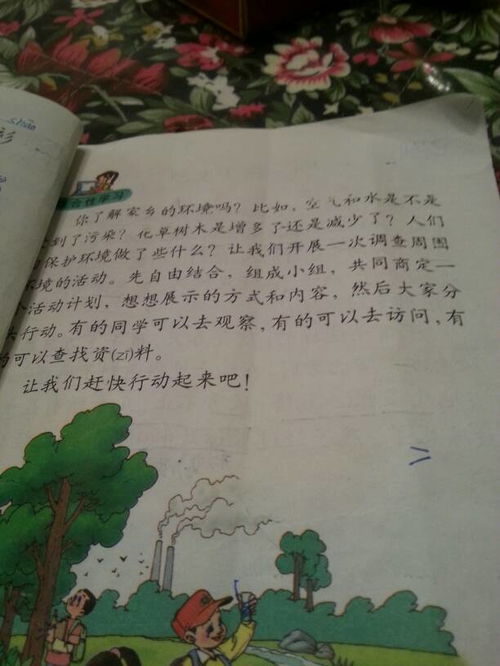 shāo
综合性学习
你了解家乡的环境吗？比如，空气和水是不是
到了污染？花草树木是增多了还是减少了？人们
保护环境做了些什么？让我们开展一次调查周围
环境的活动。先自由结合，组成小组，共同商定一
个活动计划，想想展示的方式和内容，然后大家分
头行动。有的同学可以去观察，有的可以去访问，有
的可以查找资(zī)料。
让我们赶快行动起来吧！